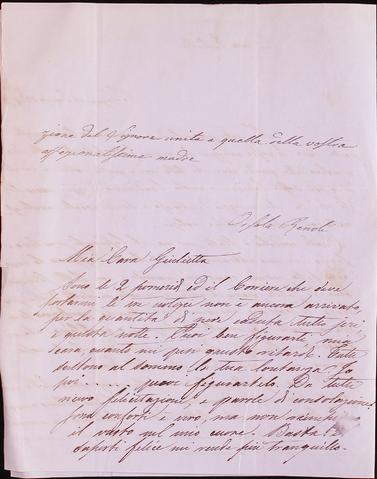 zione del Signore unita a quella della vostra
affezionatissima madre
Orsola
Mia Cara Giulietta
Sono le 2 pomerid. ed il Corriere che deve
portarmi le notizie non è ancora arrivato,
per la quantità di neve caduta tutto jeri
e questa notte. Puoi ben figurarti, mia
cara, quanto mi pesi questo ritardo. Tutti
la tua lontananza. Io
poi ..... puoi figurartelo. Da tutti
ricevo felicitazioni, e parole di consolazione
conforti è vero, ma non
il vuoto nel mio cuore. Basta il
saperti felice mi rende più tranquilla.